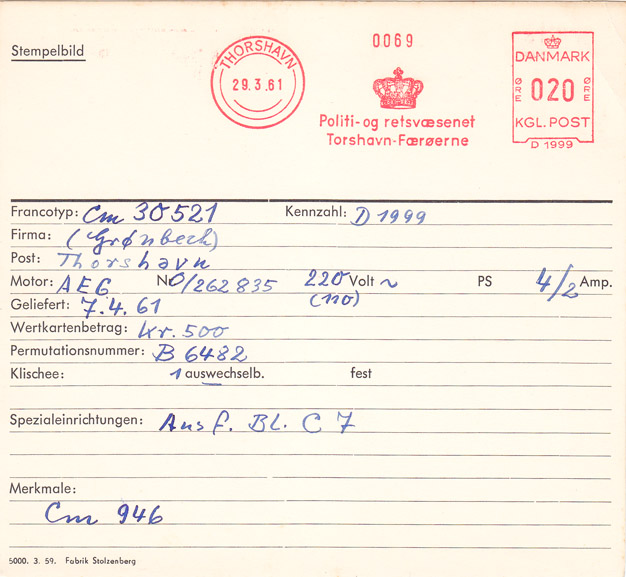 Stempelbild
THORSHAVN
29.3.61
0069
Politi-og retsvæsenet
Torshavn-Færøerne
DANMARK
ØRE 020 ØRE
KGL. POST
D 1999
Francotyp: Cm 30521 Kennzahl: D 1999
Firma: (Grønbech)
Post: Thorshavn
Motor: AEG Nr. 0/262835 220 Volt ~ PS 4/2 Amp.
(110)
Geliefert: 7.4.61
Wertkartenbetrag: Kr. 500
Permutationsnummer: B 6482
Klischee: 1 auswechselb. fest
Spezialeinrichtungen: Ausf. Bl. C 7
Merkmale:
Cm 946
5000. 3. 59. Fabrik Stolzenberg